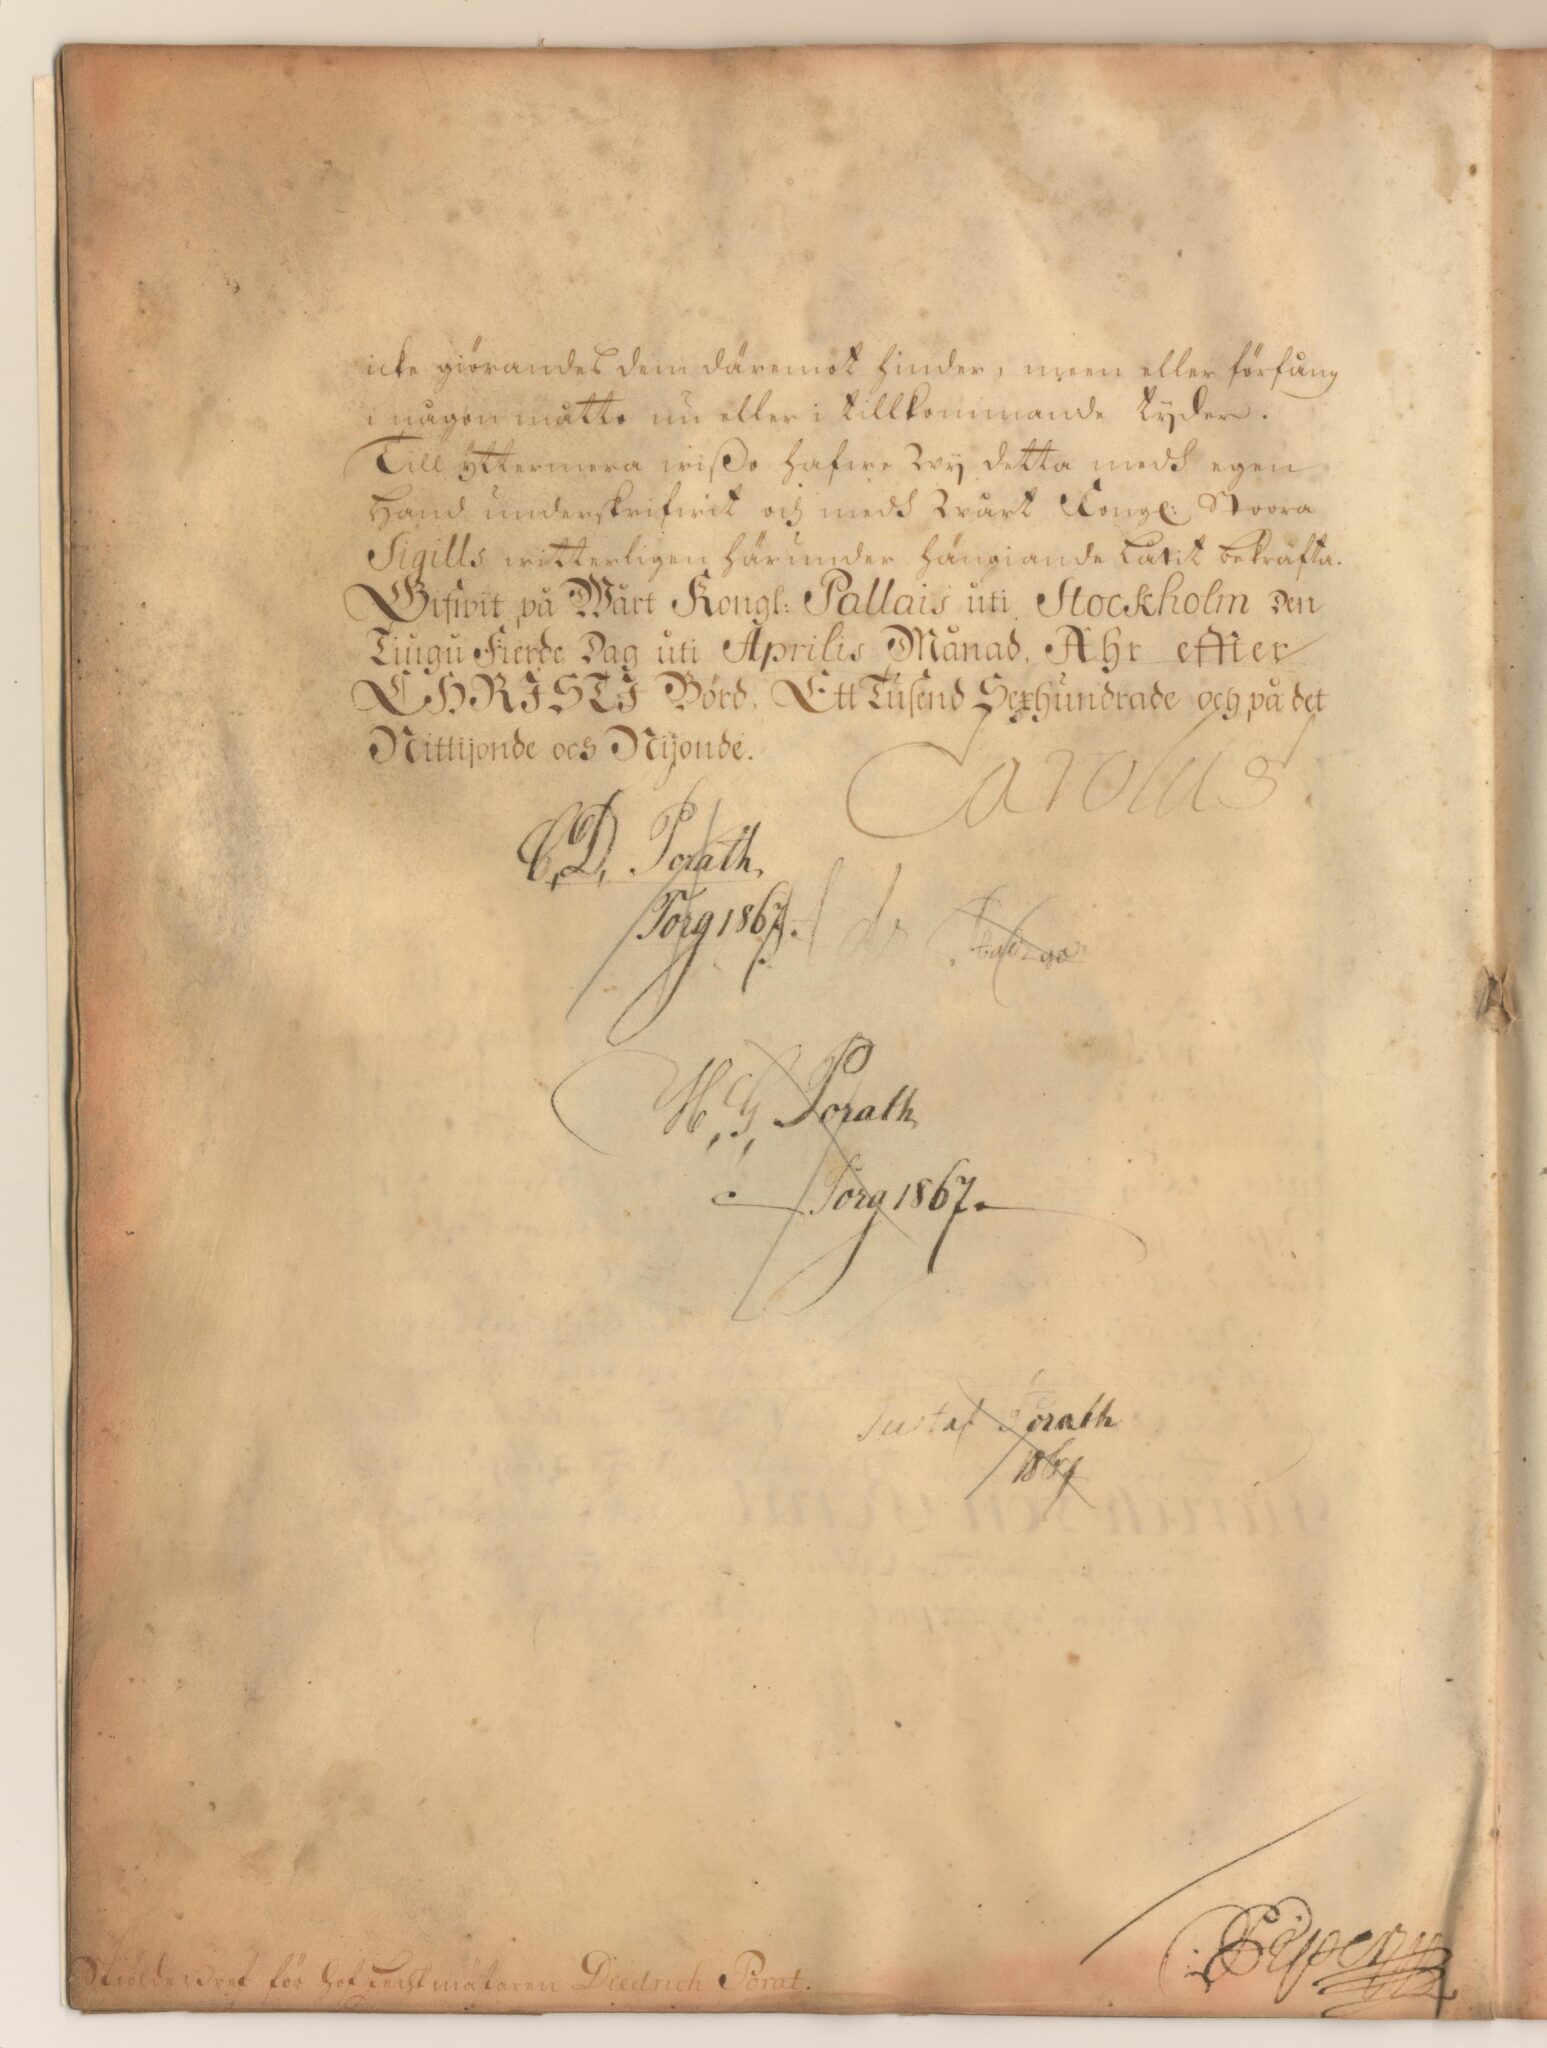 icke giörandes dem däremot hinder, meen eller förfång
i någon måtto nu eller i tillkommande tyder.
Till yttermera wißo hafwe Wij detta medh egen
Hand underskrifwit och medh Wårt Kongl: Stoora
Sigills witterligen härunder hängiande Låtit bekräfta.
Gifwit på Wårt Kongl: Pallais uti Stockholm Den
Tiugu Fierde Dag uti Aprilis Månad, Åhr effter
CHRISTI Börd, Ett Tusend Sexhundrade och på det
Nittijonde och Nijonde.
Carolus.
C. D. Porath.
Torg 1867.
H. G. Porath
Torg 1867.
Gustaf Porath
1867
C Piper
Skiölde Bref för Hof Fecht mästaren Diedrich Porat.